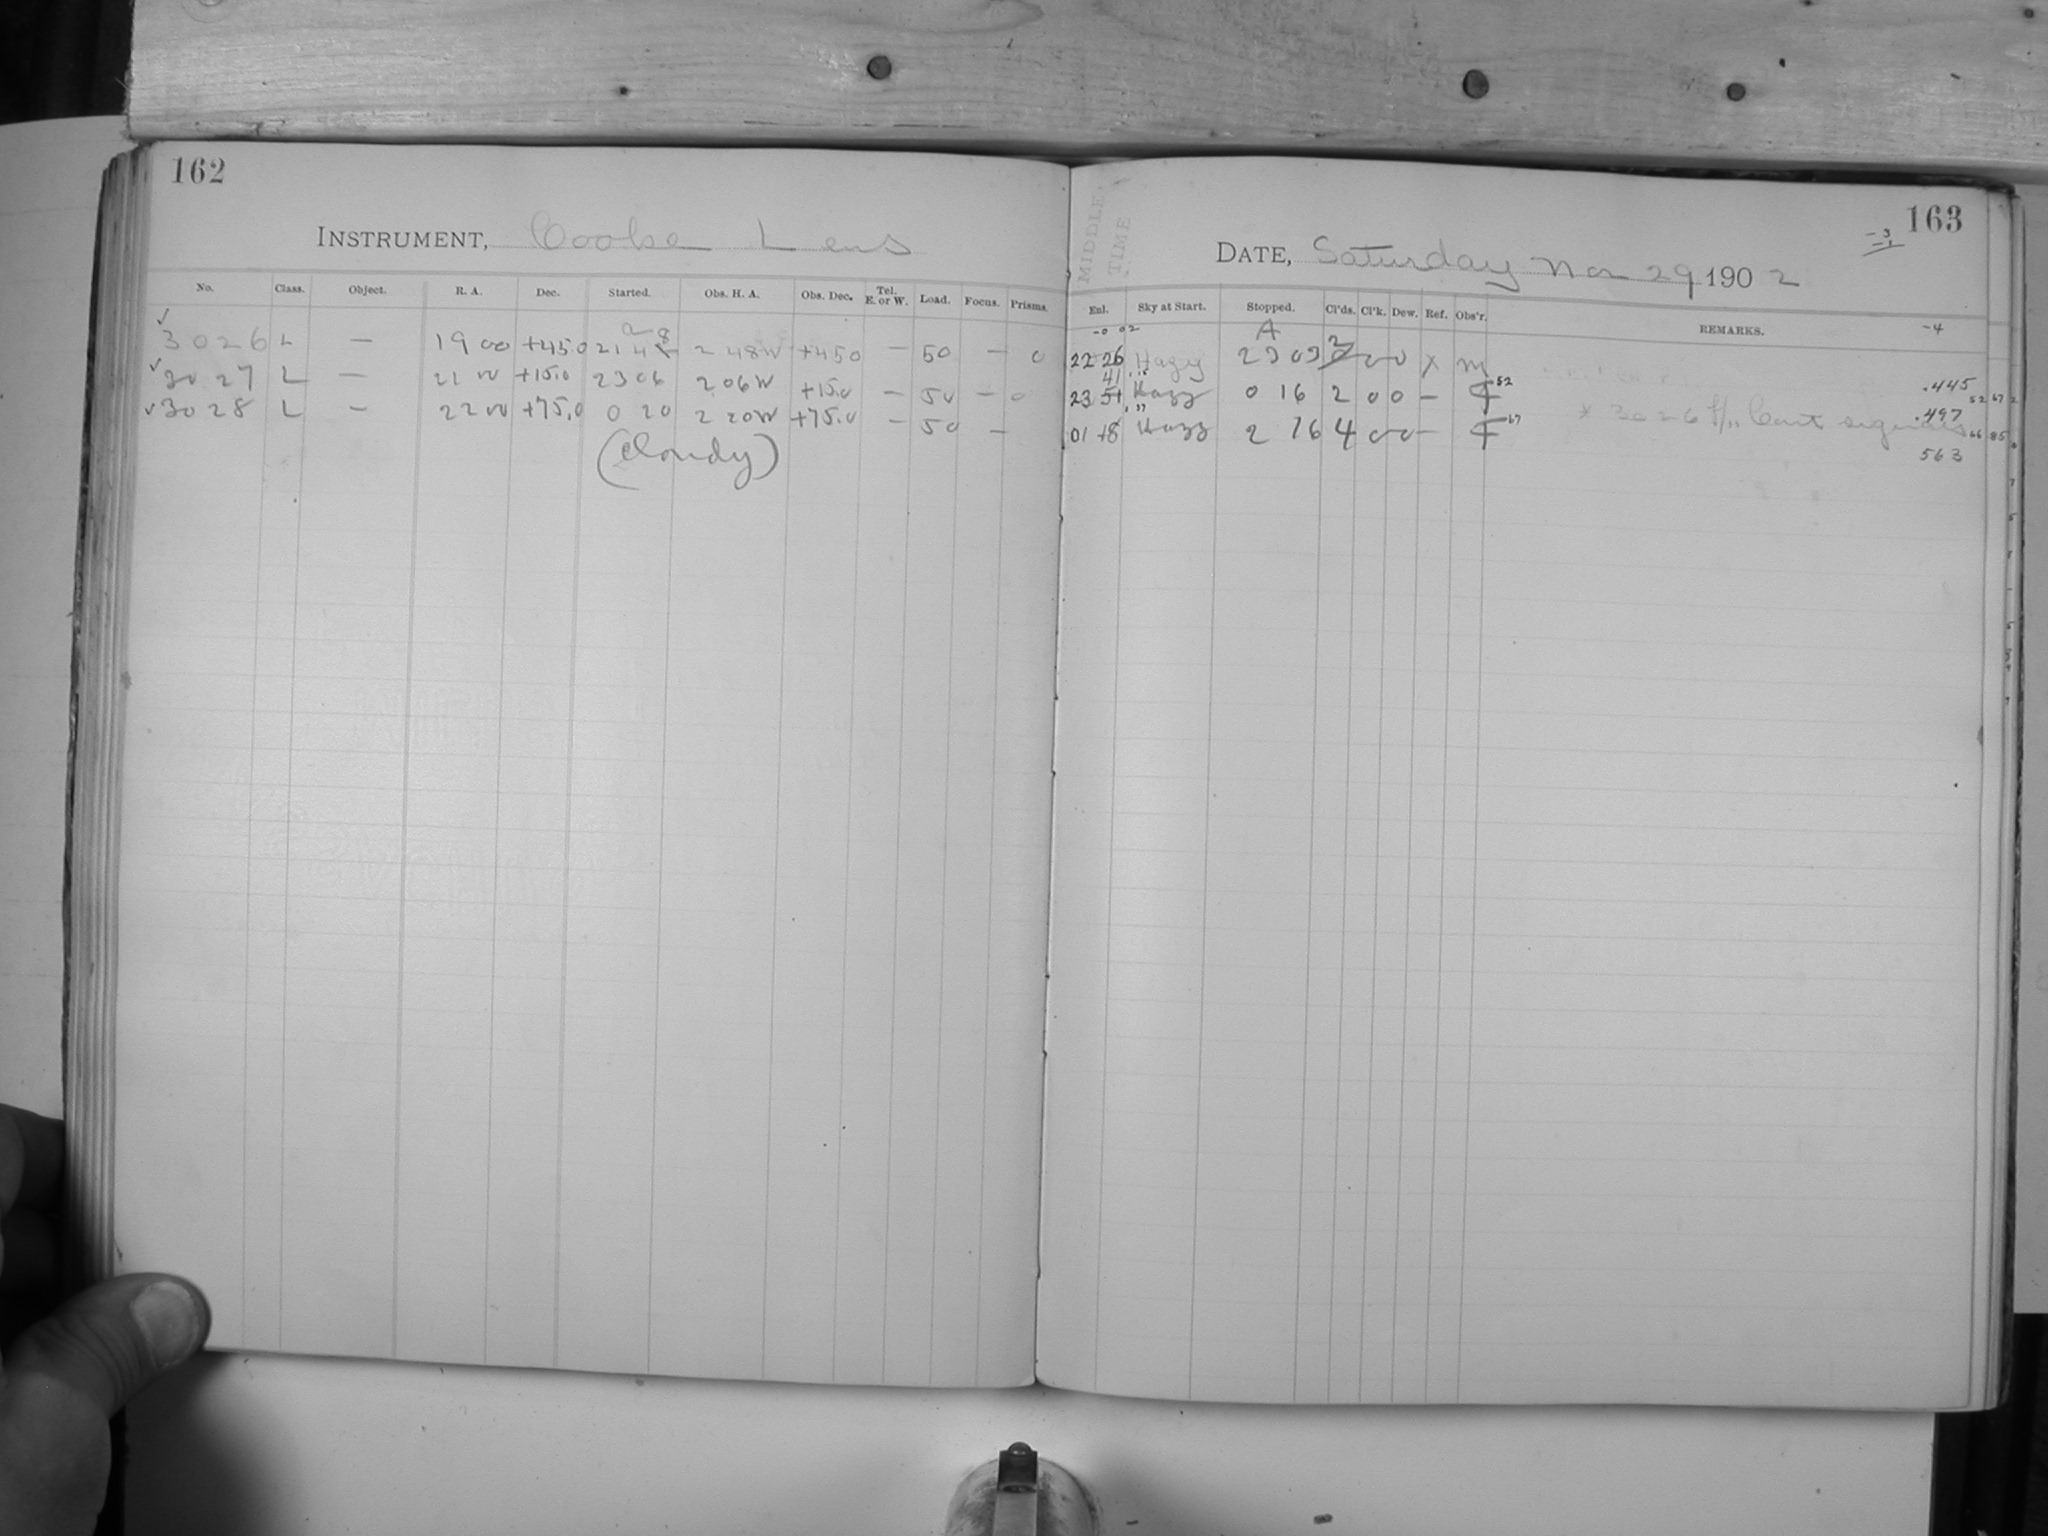 162
INSTRUMENT, Cooke Lens
No. Class. Object. R. A. Dec. Started. Obs. H. A. Obs. Dec. Tel. E. or W. Load. Focus. Prisms.
✓ 3026 L — 19 00 +45.0 21 48 2 48W +45.0 — 50 — 0
✓ 3027 L — 21 00 +15.0 23 06 2 06W +15.0 — 50 — 0
✓ 3028 L — 22 00 +75.0 0 20 2 20W +75.0 — 50 —
(Cloudy)
163
MIDDLE TIME
DATE, Saturday Nov 29 1902
Enl. Sky at Start. Stopped. Cl'ds. Cl'k. Dew. Ref. Obs'r. REMARKS.
-4
22 26 Hazy 23 03 2 0 0 X M
.445
23 41 Hazy 0 16 2 0 0 — F 52
.497
01 18 Hazy 2 16 4 0 0 — F 67
* 3026
563